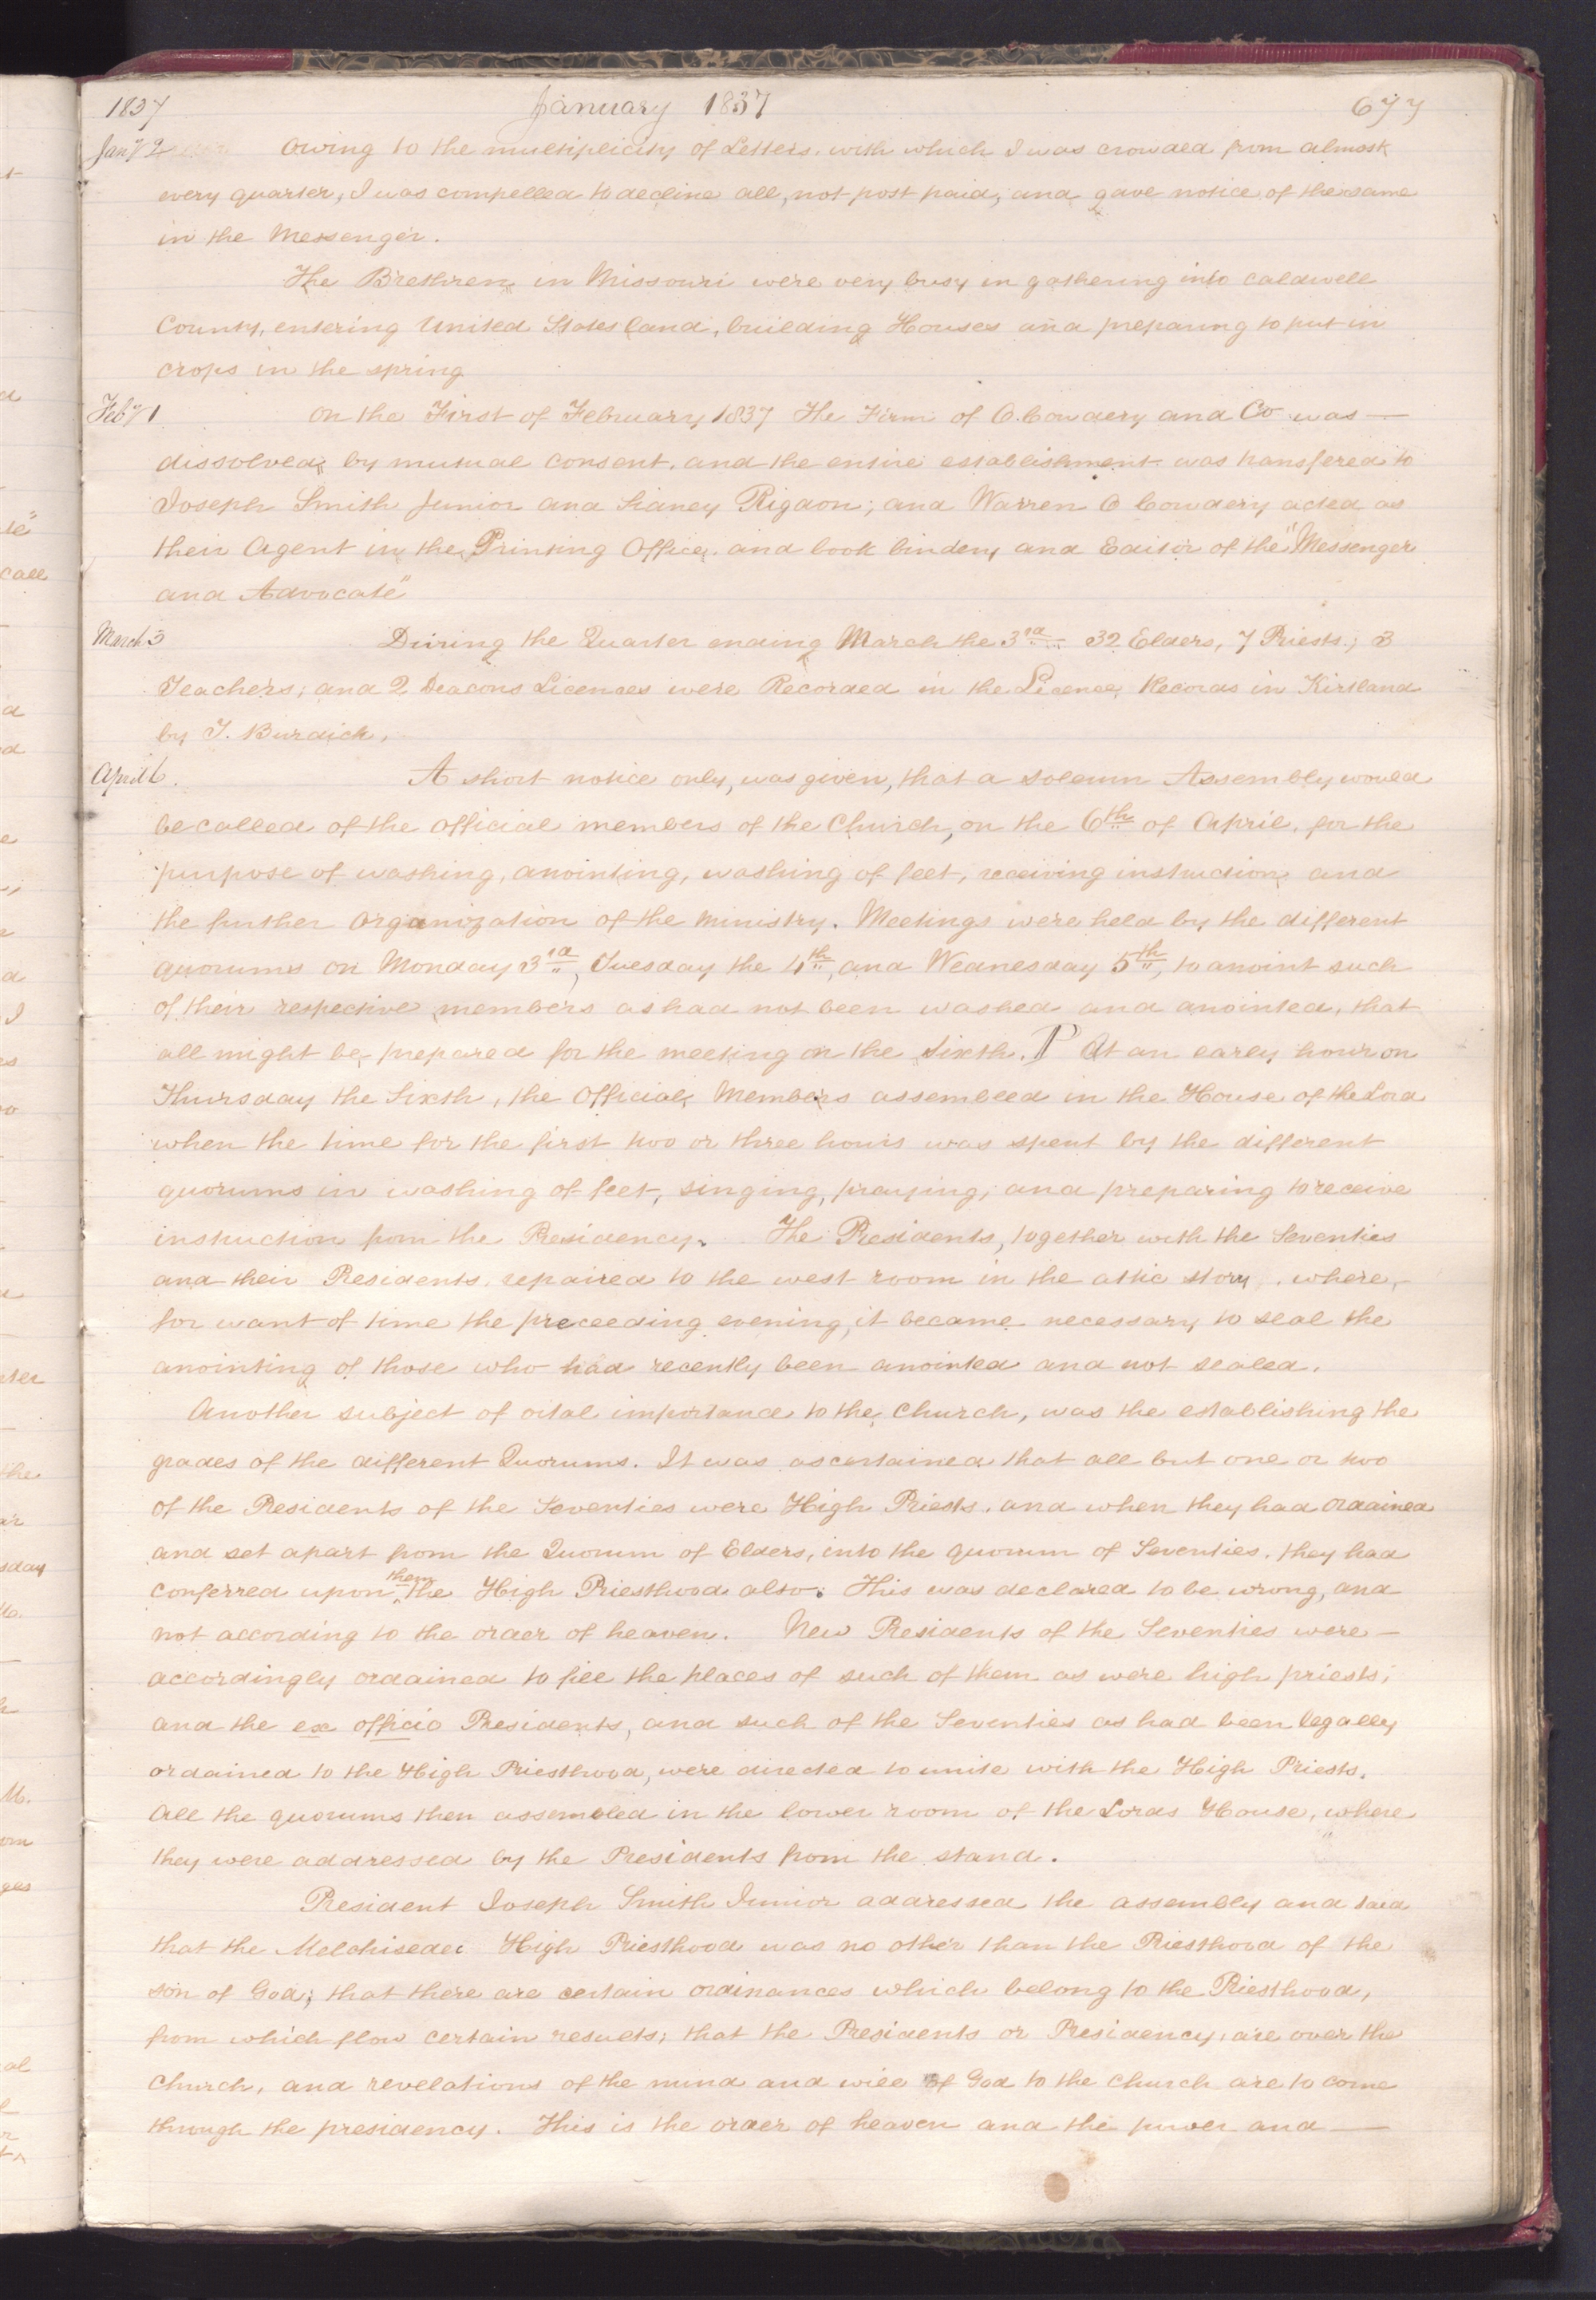 1837 January 1837 677
Jany 2 Owing to the multiplicity of Letters, with which I was crowded from almost
every quarter, I was compelled to decline all, not post paid, and gave notice of the same
in the Messenger.
The Brethren in Missouri were very busy in gathering into Caldwell
County, entering United States land, building Houses and preparing to put in
crops in the spring
Feby 1 On the First of February 1837 The Firm of O. Cowdery and Co was —
dissolved by mutual consent, and the entire establishment was transfered to
Joseph Smith Junior and Sidney Rigdon; and Warren O Cowdery acted as
their Agent in the Printing Office, and book bindery and Editor of the "Messenger
and Advocate"
March 3 During the Quarter ending March the 3rd 32 Elders, 7 Priests; 3
Teachers; and 2 Deacons Licences were Recorded in the Licence Records in Kirtland
by T. Burdick,
April 6. A short notice only, was given, that a solemn Assembly would
be called of the official members of the Church, on the 6th of April, for the
purpose of washing, anointing, washing of feet, receiving instruction and
the further organization of the ministry. Meetings were held by the different
quorums on Monday 3rd, Tuesday the 4th, and Wednesday 5th, to anoint such
of their respective members as had not been washed and anointed, that
all might be prepared for the meeting on the sixth. P At an early hour on
Thursday the Sixth, the Official Members assembled in the House of the Lord
when the time for the first two or three hours was spent by the different
quorums in washing of feet, singing, praying, and preparing to receive
instruction from the Presidency. The Presidents, together with the Seventies
and their Presidents, repaired to the west room in the attic story, where,
for want of time the preceeding evening, it became necessary to seal the
anointing of those who had recently been anointed and not sealed.
Another subject of vital importance to the Church, was the establishing the
grades of the different Quorums. It was ascertained that all but one or two
of the Presidents of the Seventies were High Priests, and when they had ordained
and set apart from the Quorum of Elders, into the quorum of Seventies, they had
conferred upon them the High Priesthood also. This was declared to be wrong, and
not according to the order of heaven. New Presidents of the Seventies were —
accordingly ordained to fill the places of such of them as were high priests;
and the ex officio Presidents, and such of the Seventies as had been legally
ordained to the High Priesthood, were directed to unite with the High Priests.
All the quorums then assembled in the lower room of the Lords House, where
they were addressed by the Presidents from the stand.
President Joseph Smith Junior addressed the assembly and said
that the Melchisedec High Priesthood was no other than the Priesthood of the
son of God; that there are certain ordinances which belong to the Priesthood,
from which flow certain results; that the Presidents or Presidency, are over the
Church, and revelations of the mind and will of God to the church are to come
through the presidency. This is the order of heaven and the power and —